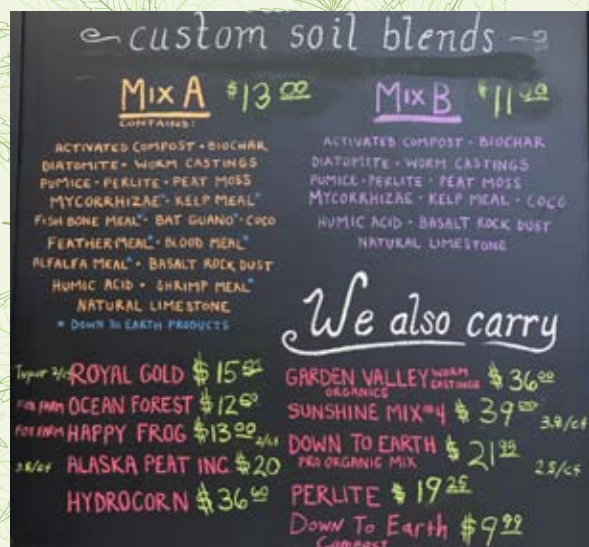 custom soil blends
MIX A $13 00
CONTAINS:
ACTIVATED COMPOST • BIOCHAR
DIATOMITE • WORM CASTINGS
PUMICE • PERLITE • PEAT MOSS
MYCORRHIZAE • KELP MEAL*
FISH BONE MEAL* • BAT GUANO* • COCO
FEATHER MEAL* • BLOOD MEAL*
ALFALFA MEAL* • BASALT ROCK DUST
HUMIC ACID • SHRIMP MEAL*
NATURAL LIMESTONE
* DOWN TO EARTH PRODUCTS
MIX B $11
ACTIVATED COMPOST • BIOCHAR
DIATOMITE • WORM CASTINGS
PUMICE • PERLITE • PEAT MOSS
MYCORRHIZAE • KELP MEAL • COCO
HUMIC ACID • BASALT ROCK DUST
NATURAL LIMESTONE
We also carry
ROYAL GOLD $15
FOX FARM OCEAN FOREST $12
FOX FARM HAPPY FROG $13 00
3.8/cf ALASKA PEAT INC $20
HYDROCORN $36
GARDEN VALLEY ORGANICS WORM CASTINGS $36 00
SUNSHINE MIX #4 $39 3.8/cf
DOWN TO EARTH PRO ORGANIC MIX $21 99
PERLITE $19 25
Down To Earth Compost $9 99